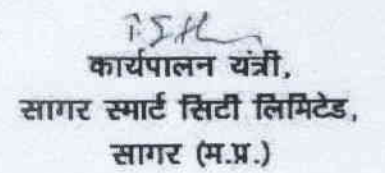 कार्यपालन यंत्री,
सागर स्मार्ट सिटी लिमिटेड,
सागर (म.प्र.)